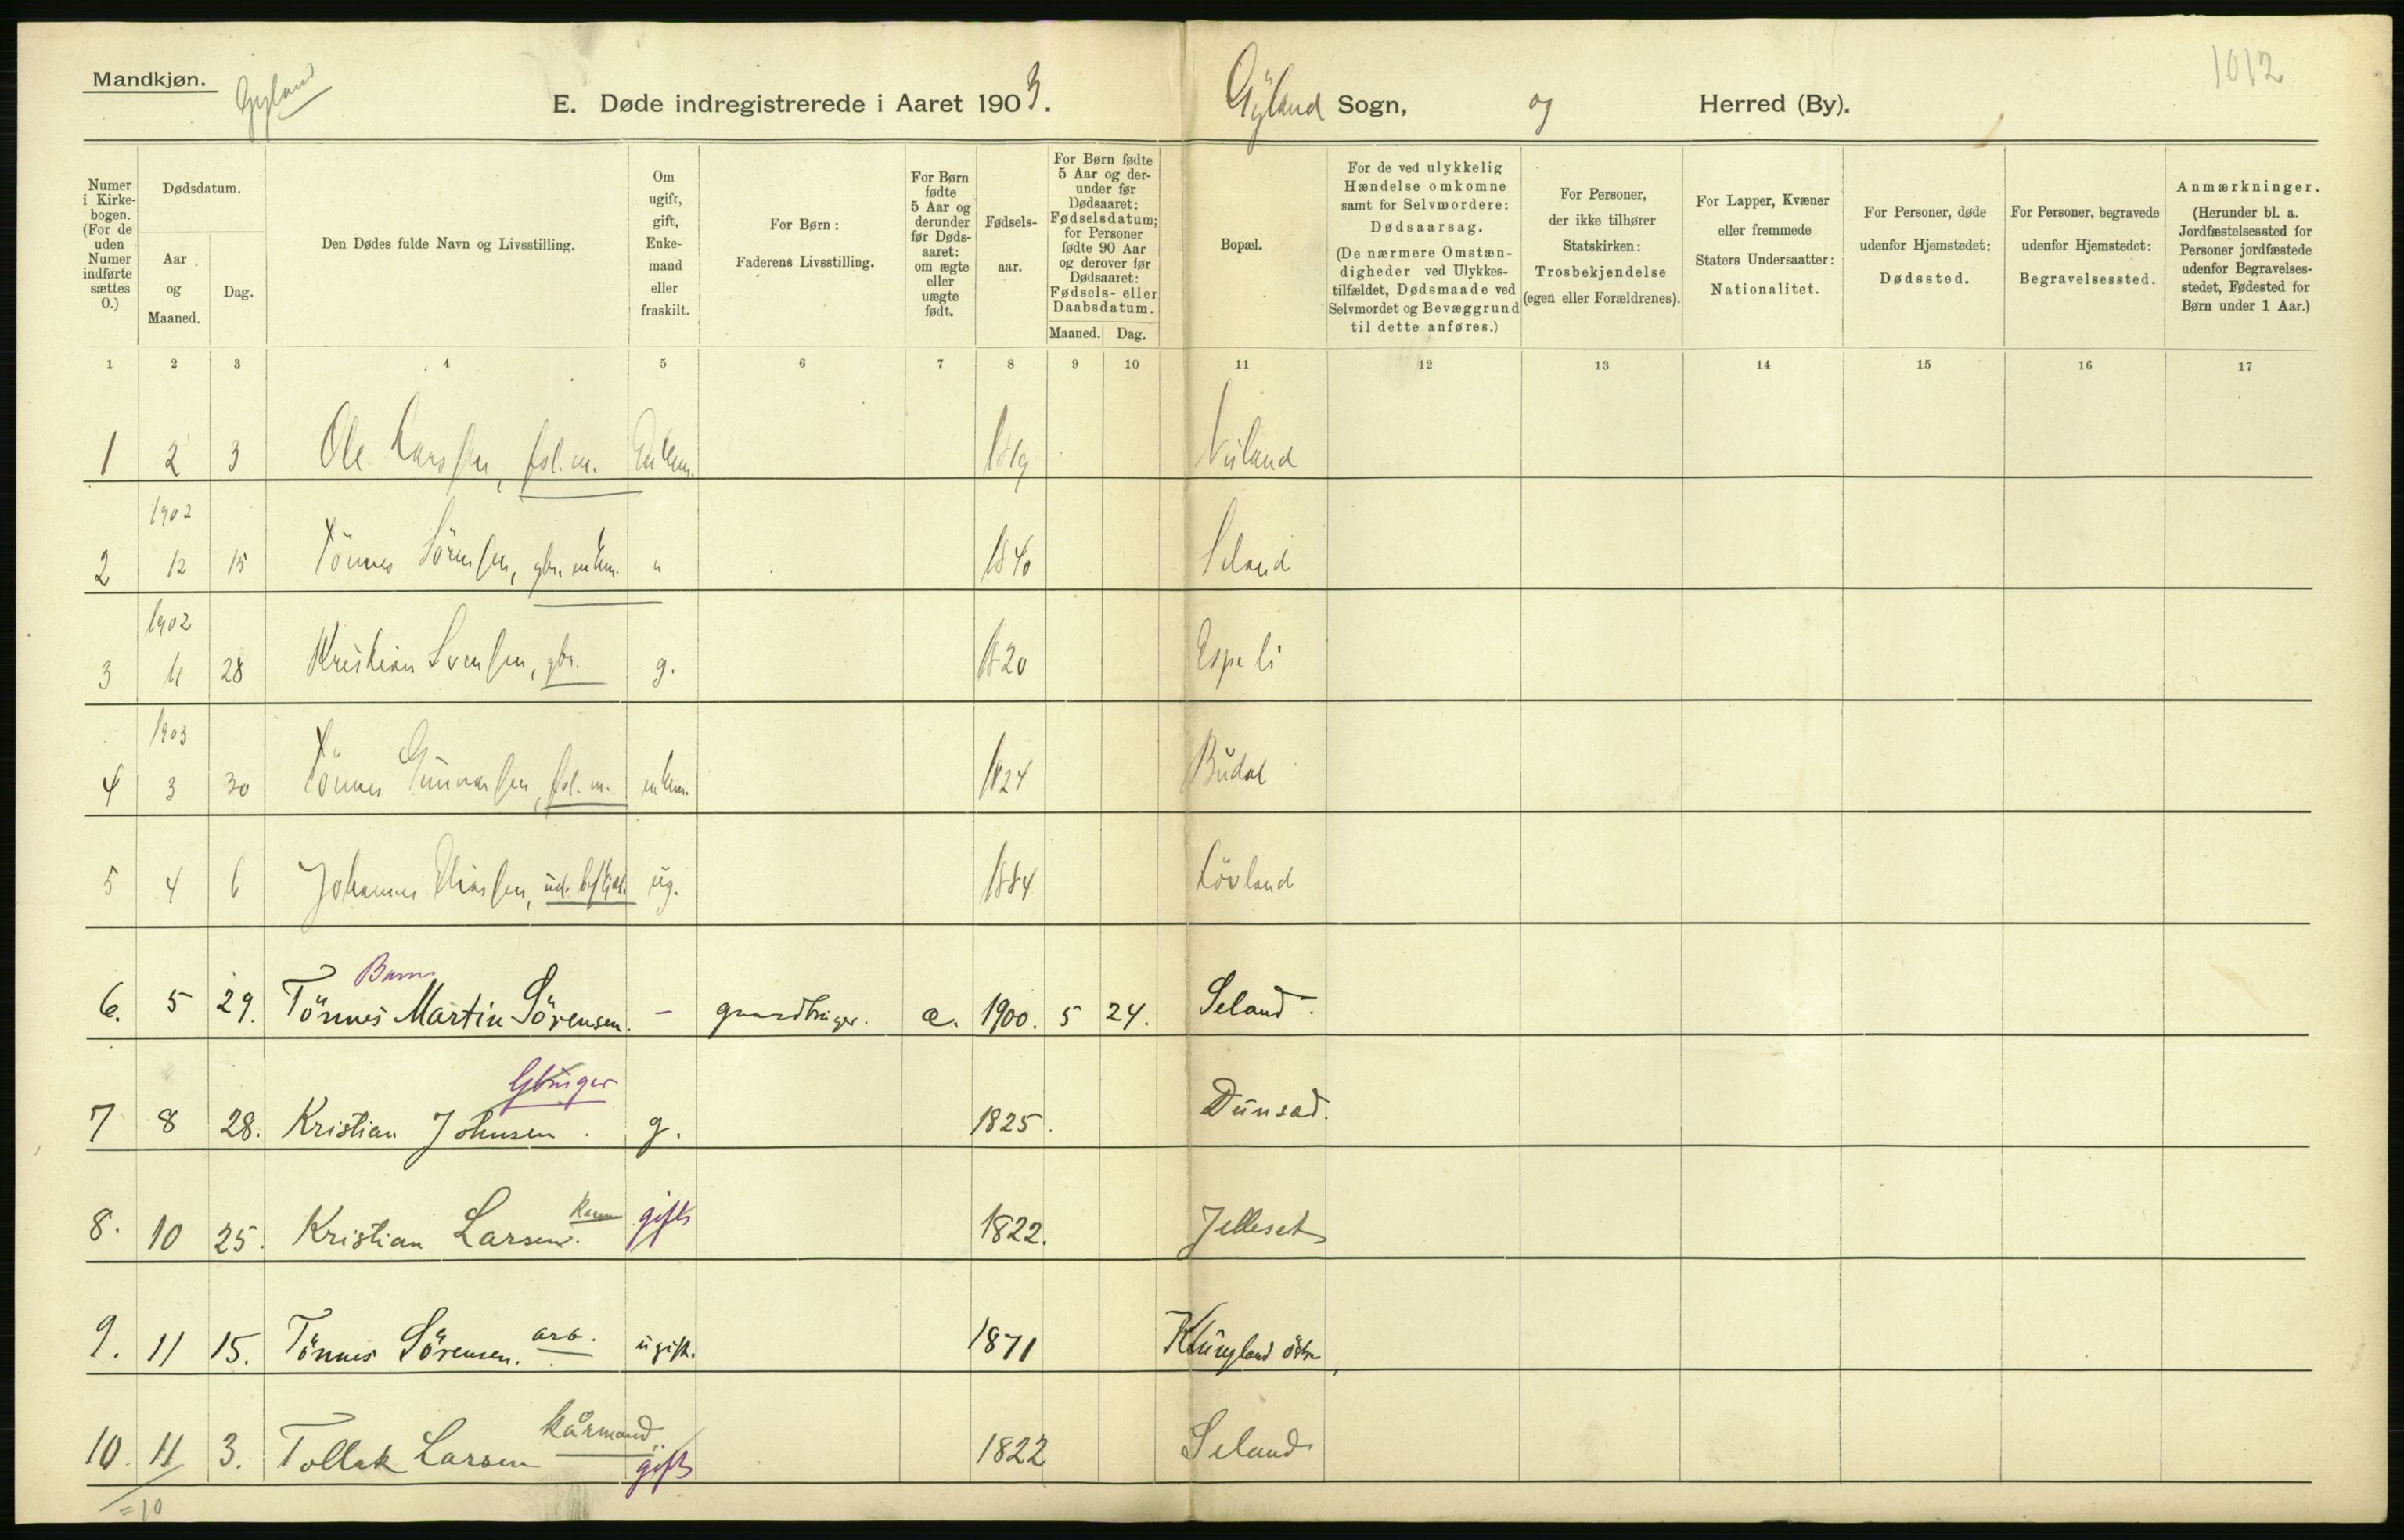 Mandkjøn.
Gyland
E. Døde indregistrerede i Aaret 1903.
Gyland Sogn, og Herred (By).
1012.
Numer i Kirkebogen. (For de uden Numer indførte sættes O.)
Dødsdatum.
Aar og Maaned.
Dag.
Den Dødes fulde Navn og Livsstilling.
Om ugift, gift, Enkemand eller fraskilt.
For Børn: Faderens Livsstilling.
For Børn fødte 5 Aar og derunder før Dødsaaret: om ægte eller uægte født.
Fødselsaar.
For Børn fødte 5 Aar og derunder før Dødsaaret: Fødselsdatum; for Personer fødte 90 Aar og derover før Dødsaaret: Fødsels- eller Daabsdatum.
Maaned. Dag.
Bopæl.
For de ved ulykkelig Hændelse omkomne samt for Selvmordere: Dødsaarsag. (De nærmere Omstændigheder ved Ulykkestilfældet, Dødsmaade ved Selvmordet og Bevæggrund til dette anføres.)
For Personer, der ikke tilhører Statskirken: Trosbekjendelse (egen eller Forældrenes).
For Lapper, Kvæner eller fremmede Staters Undersaatter: Nationalitet.
For Personer, døde udenfor Hjemstedet: Dødssted.
For Personer, begravede udenfor Hjemstedet: Begravelsessted.
Anmærkninger. (Herunder bl. a. Jordfæstelsessted for Personer jordfæstede udenfor Begravelsesstedet, Fødested for Børn under 1 Aar.)
1 2 3 4 5 6 7 8 9 10 11 12 13 14 15 16 17
1 2 3 Ole Larssen, fol.m. Enkem. 1819 Niland
1902
2 12 15 Tönnes Sörensen, gbr. enkm. " 1840 Seland
1902
3 11 28 Kristian Svensen, gbr. g. 1820 Espeli
1903
4 3 30 Tönnes Gunvarsen, fol.m. enkm. 1824 Büdal
5 4 6 Johannes Eliassen, ug. 1884 Lövland
Barn
6. 5 29. Tönnes Martin Sörensen. - gaardbruger. æ. 1900. 5 24. Seland.
Gbruger
7 8 28. Kristian Johnsen. g. 1825. Dunsad.
8. 10 25. Kristian Larsen. gift 1822. Jelleset
9. 11 15. Tönnes Sörensen. arb. ugift. 1871 Klungland östre
10. 11 3. Tollak Larsen kårmand. gift 1822 Seland
=10